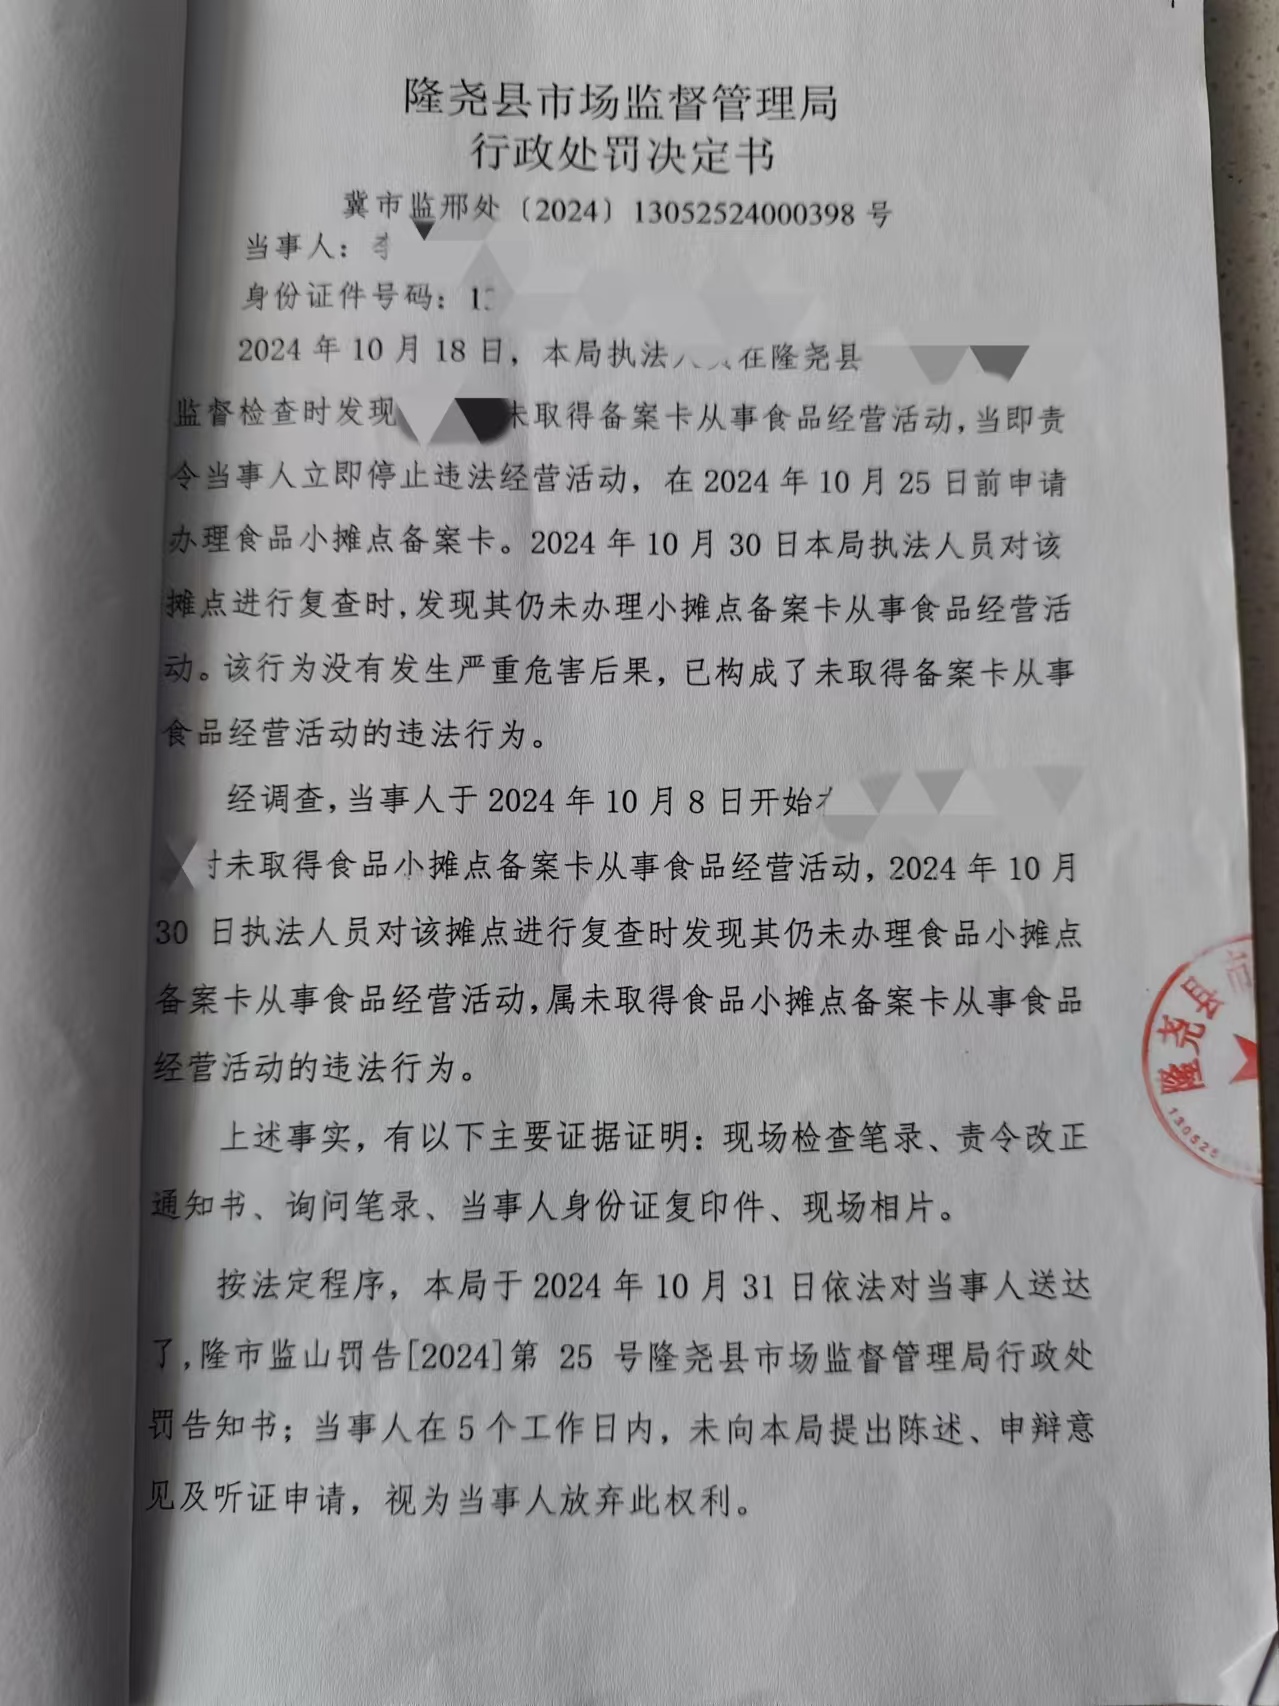 隆尧县市场监督管理局
行政处罚决定书
冀市监邢处〔2024〕13052524000398号
当事人：李
身份证件号码：1
2024年10月18日，本局执法人员在隆尧县
监督检查时发现 未取得备案卡从事食品经营活动，当即责
令当事人立即停止违法经营活动，在2024年10月25日前申请
办理食品小摊点备案卡。2024年10月30日本局执法人员对该
摊点进行复查时，发现其仍未办理小摊点备案卡从事食品经营活
动。该行为没有发生严重危害后果，已构成了未取得备案卡从事
食品经营活动的违法行为。
经调查，当事人于2024年10月8日开始
村未取得食品小摊点备案卡从事食品经营活动，2024年10月
30 日执法人员对该摊点进行复查时发现其仍未办理食品小摊点
备案卡从事食品经营活动，属未取得食品小摊点备案卡从事食品
经营活动的违法行为。
上述事实，有以下主要证据证明：现场检查笔录、责令改正
通知书、询问笔录、当事人身份证复印件、现场相片。
按法定程序，本局于2024年10月31日依法对当事人送达
了，隆市监山罚告[2024]第 25 号隆尧县市场监督管理局行政处
罚告知书；当事人在5个工作日内，未向本局提出陈述、申辩意
见及听证申请，视为当事人放弃此权利。
隆尧县市
130525